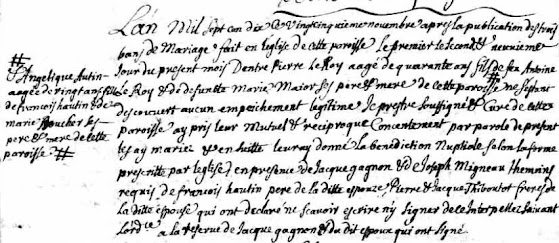 L'an Mil Sept con dix Le Vingt cinquieme novembre apres la publication des trois
bans de Mariage fait en l'eglise de cette paroisse le premier le second & neuvieme
Jour du present mois Dentre Pierre Le Roy aagé de quarante ans fils de feu Antoine
Le Roy & de defunte Marie Maior ses pere & mere de cette paroisse # ne s'etant
descouvert aucun empeichement legitime Je prestre soussigné Curé de cette
paroisse ay pris leur Mutuel & reciproque Concentement par parole de present
les ay mariez & en suitte leur ay donné la benediction Nuptiale selon la forme
prescritte par l'eglise en presence de Jacque gagnon & de Joseph Migneau themoins
requis de francois hautin pere de la ditte epouze Pierre & Jacque Thiboutot freres de
la ditte epouse qui ont declaré ne scavoir escrire ny signer de ce Interpellez suivant
lord^ce a la reserve de Jacque gagnon & du dit epoux qui ont signé
#
Angelique Autin
aagée de vingt ans fille
de francois hautin & de
marie Boucher ses
pere & mere de cette
paroisse #